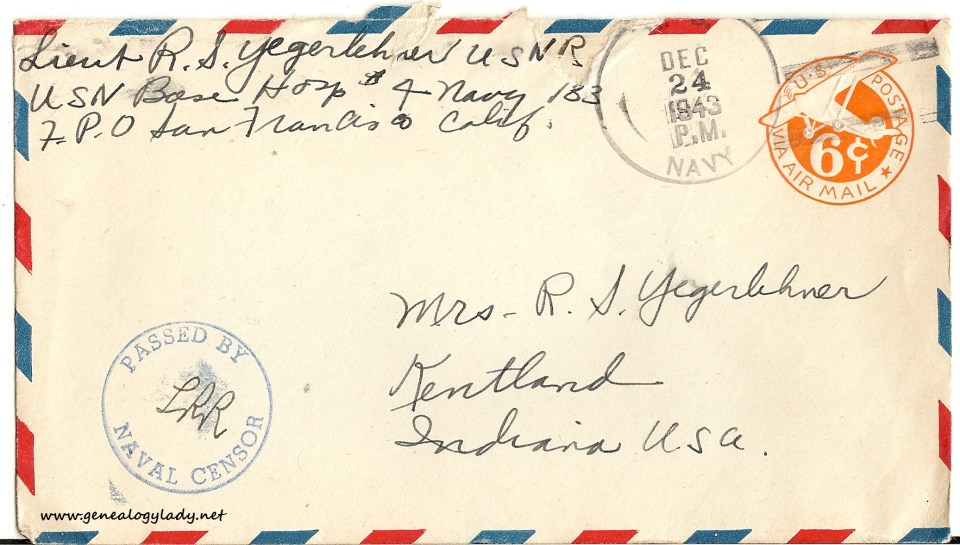 Lieut R. S. Yegerlehner USNR
USN Base Hosp # 4 Navy 133
F.P.O San Francisco Calif.
DEC
24
1943
P.M.
NAVY
U.S. POSTAGE
6¢
VIA AIR MAIL
Mrs - R. S. Yegerlehner
Kentland
Indiana USA.
PASSED BY
LRR
NAVAL CENSOR
www.genealogylady.net